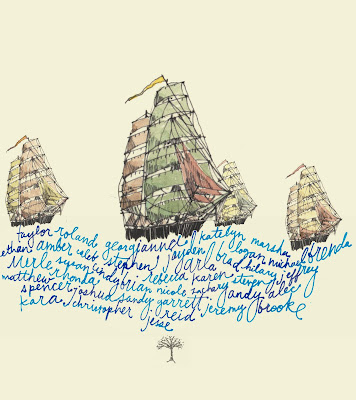 taylor roland georgianne katelyn marsha
ethan amber caleb stephen jayden logan michael brenda
merle susan cindy rebecca carla brad hilary jeffrey
matthew rhonda brian nicole karen zachary steven andy alec
spencer joshua sandy garrett reid jeremy brooke
kara christopher jesse